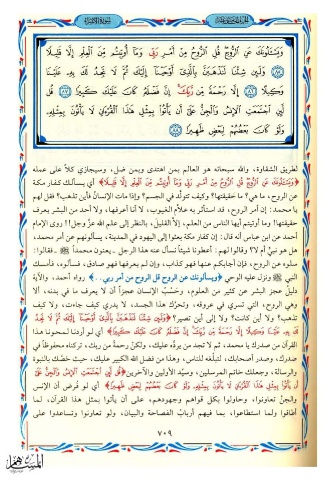 الجزء الخامس عشر
سورة الإسراء
وَيَسْـَٔلُونَكَ عَنِ ٱلرُّوحِ قُلِ ٱلرُّوحُ مِنْ أَمْرِ رَبِّى وَمَآ أُوتِيتُم مِّنَ ٱلْعِلْمِ إِلَّا قَلِيلًا
﴿٨٥﴾ وَلَئِن شِئْنَا لَنَذْهَبَنَّ بِٱلَّذِىٓ أَوْحَيْنَآ إِلَيْكَ ثُمَّ لَا تَجِدُ لَكَ بِهِۦ عَلَيْنَا
وَكِيلًا ﴿٨٦﴾ إِلَّا رَحْمَةً مِّن رَّبِّكَ إِنَّ فَضْلَهُۥ كَانَ عَلَيْكَ كَبِيرًا ﴿٨٧﴾ قُل
لَّئِنِ ٱجْتَمَعَتِ ٱلْإِنسُ وَٱلْجِنُّ عَلَىٰٓ أَن يَأْتُوا۟ بِمِثْلِ هَٰذَا ٱلْقُرْءَانِ لَا يَأْتُونَ بِمِثْلِهِۦ
وَلَوْ كَانَ بَعْضُهُمْ لِبَعْضٍ ظَهِيرًا ﴿٨٨﴾
لطريق الشقاوة، والله سبحانه هو العالم بمن اهتدى وبمن ضل، وسيجازي كلاً على عمله
﴿وَيَسْـَٔلُونَكَ عَنِ ٱلرُّوحِ قُلِ ٱلرُّوحُ مِنْ أَمْرِ رَبِّى وَمَآ أُوتِيتُم مِّنَ ٱلْعِلْمِ إِلَّا قَلِيلًا﴾ أي يسألك كفار مكة
عن الروح، ما هي؟ ما حقيقتها؟ وكيف تتولّد في الجسم؟ وإذا مات الإنسان فأين تذهب؟ فقل لهم
يا محمد: إن أمر الروح، قد استأثر به علام الغيوب، لا أنا أعرفها، ولا أحد من البشر يعرف
حقيقتها! وما أوتيتم أيها الناس من العلم، إلا القليل، بالنظر إلى علم الله عزّ وجلّ! روى الإمام
أحمد عن ابن عباس أنه قال: إن كفار مكة بعثوا إلى اليهود في المدينة، يسألونهم عن أمر محمد،
هل هو نبيّ أم لا؟ وقالوا لهم: أعطونا شيئاً نسأل عنه هذا الرجل ـ يعنون محمداً ﷺ ـ فقالوا:
سلوه عن الروح، فإن أجابكم عنها فهو كذاب، وإن لم يعرفها فهو صادق، فسألوه، فأمسك
النبي ﷺ ونزل عليه الوحي ﴿ويسألونك عن الروح قل الروح من أمر ربي . .﴾ رواه أحمد، والآية
دليلُ عجز البشر عن كثير من العلوم، وحَسْبُ الإنسان عجزاً أن لا يعرف ما في بدنه، ألا
وهي الروح، التي تسري في عروقه، وتحرّك هذا الجسد، لا يدري كيف جاءت، ولا كيف
تذهب؟ ولا أين كانت؟ ولا إلى أين تصير؟ ﴿وَلَئِن شِئْنَا لَنَذْهَبَنَّ بِٱلَّذِىٓ أَوْحَيْنَآ إِلَيْكَ ثُمَّ لَا تَجِدُ
لَكَ بِهِۦ عَلَيْنَا وَكِيلًا إِلَّا رَحْمَةً مِّن رَّبِّكَ إِنَّ فَضْلَهُۥ كَانَ عَلَيْكَ كَبِيرًا﴾ أي لو أردنا لمحونا هذا
القرآن من صدرك يا محمد، ثم لا تجد من يردّه عليك، ولكنْ رحمةً من ربك، تركناه محفوظاً في
صدرك، وصدر أصحابك، لتبلّغه للناس، وهذا من فضل الله الكبير عليك، حيث خصّك بالنبوة
والرسالة، وجعلك خاتم المرسلين، وسيّد الأولين والآخرين ﴿قُل لَّئِنِ ٱجْتَمَعَتِ ٱلْإِنسُ وَٱلْجِنُّ عَلَىٰٓ
أَن يَأْتُوا۟ بِمِثْلِ هَٰذَا ٱلْقُرْءَانِ لَا يَأْتُونَ بِمِثْلِهِۦ وَلَوْ كَانَ بَعْضُهُمْ لِبَعْضٍ ظَهِيرًا﴾ أي لو فُرض أن الإنس
والجنّ تعاونوا، وحاولوا بكل قواهم وجهودهم، على أن يأتوا بمثل هذا القرآن، لما
أطاقوا ولما استطاعوا، بما فيهم أرباب الفصاحة والبيان، ولو تعاونوا وتساعدوا على
٧٠٩